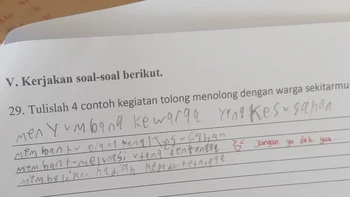 V. Kerjakan soal-soal berikut.
29. Tulislah 4 contoh kegiatan tolong menolong dengan warga sekitarmu
menyumbang kewarga yang kesusahan
membantu orang yang kesusahan
membantu melunasi utang tentangga jangan ya dek yaa..
memberikan hadiah kepada tetangga